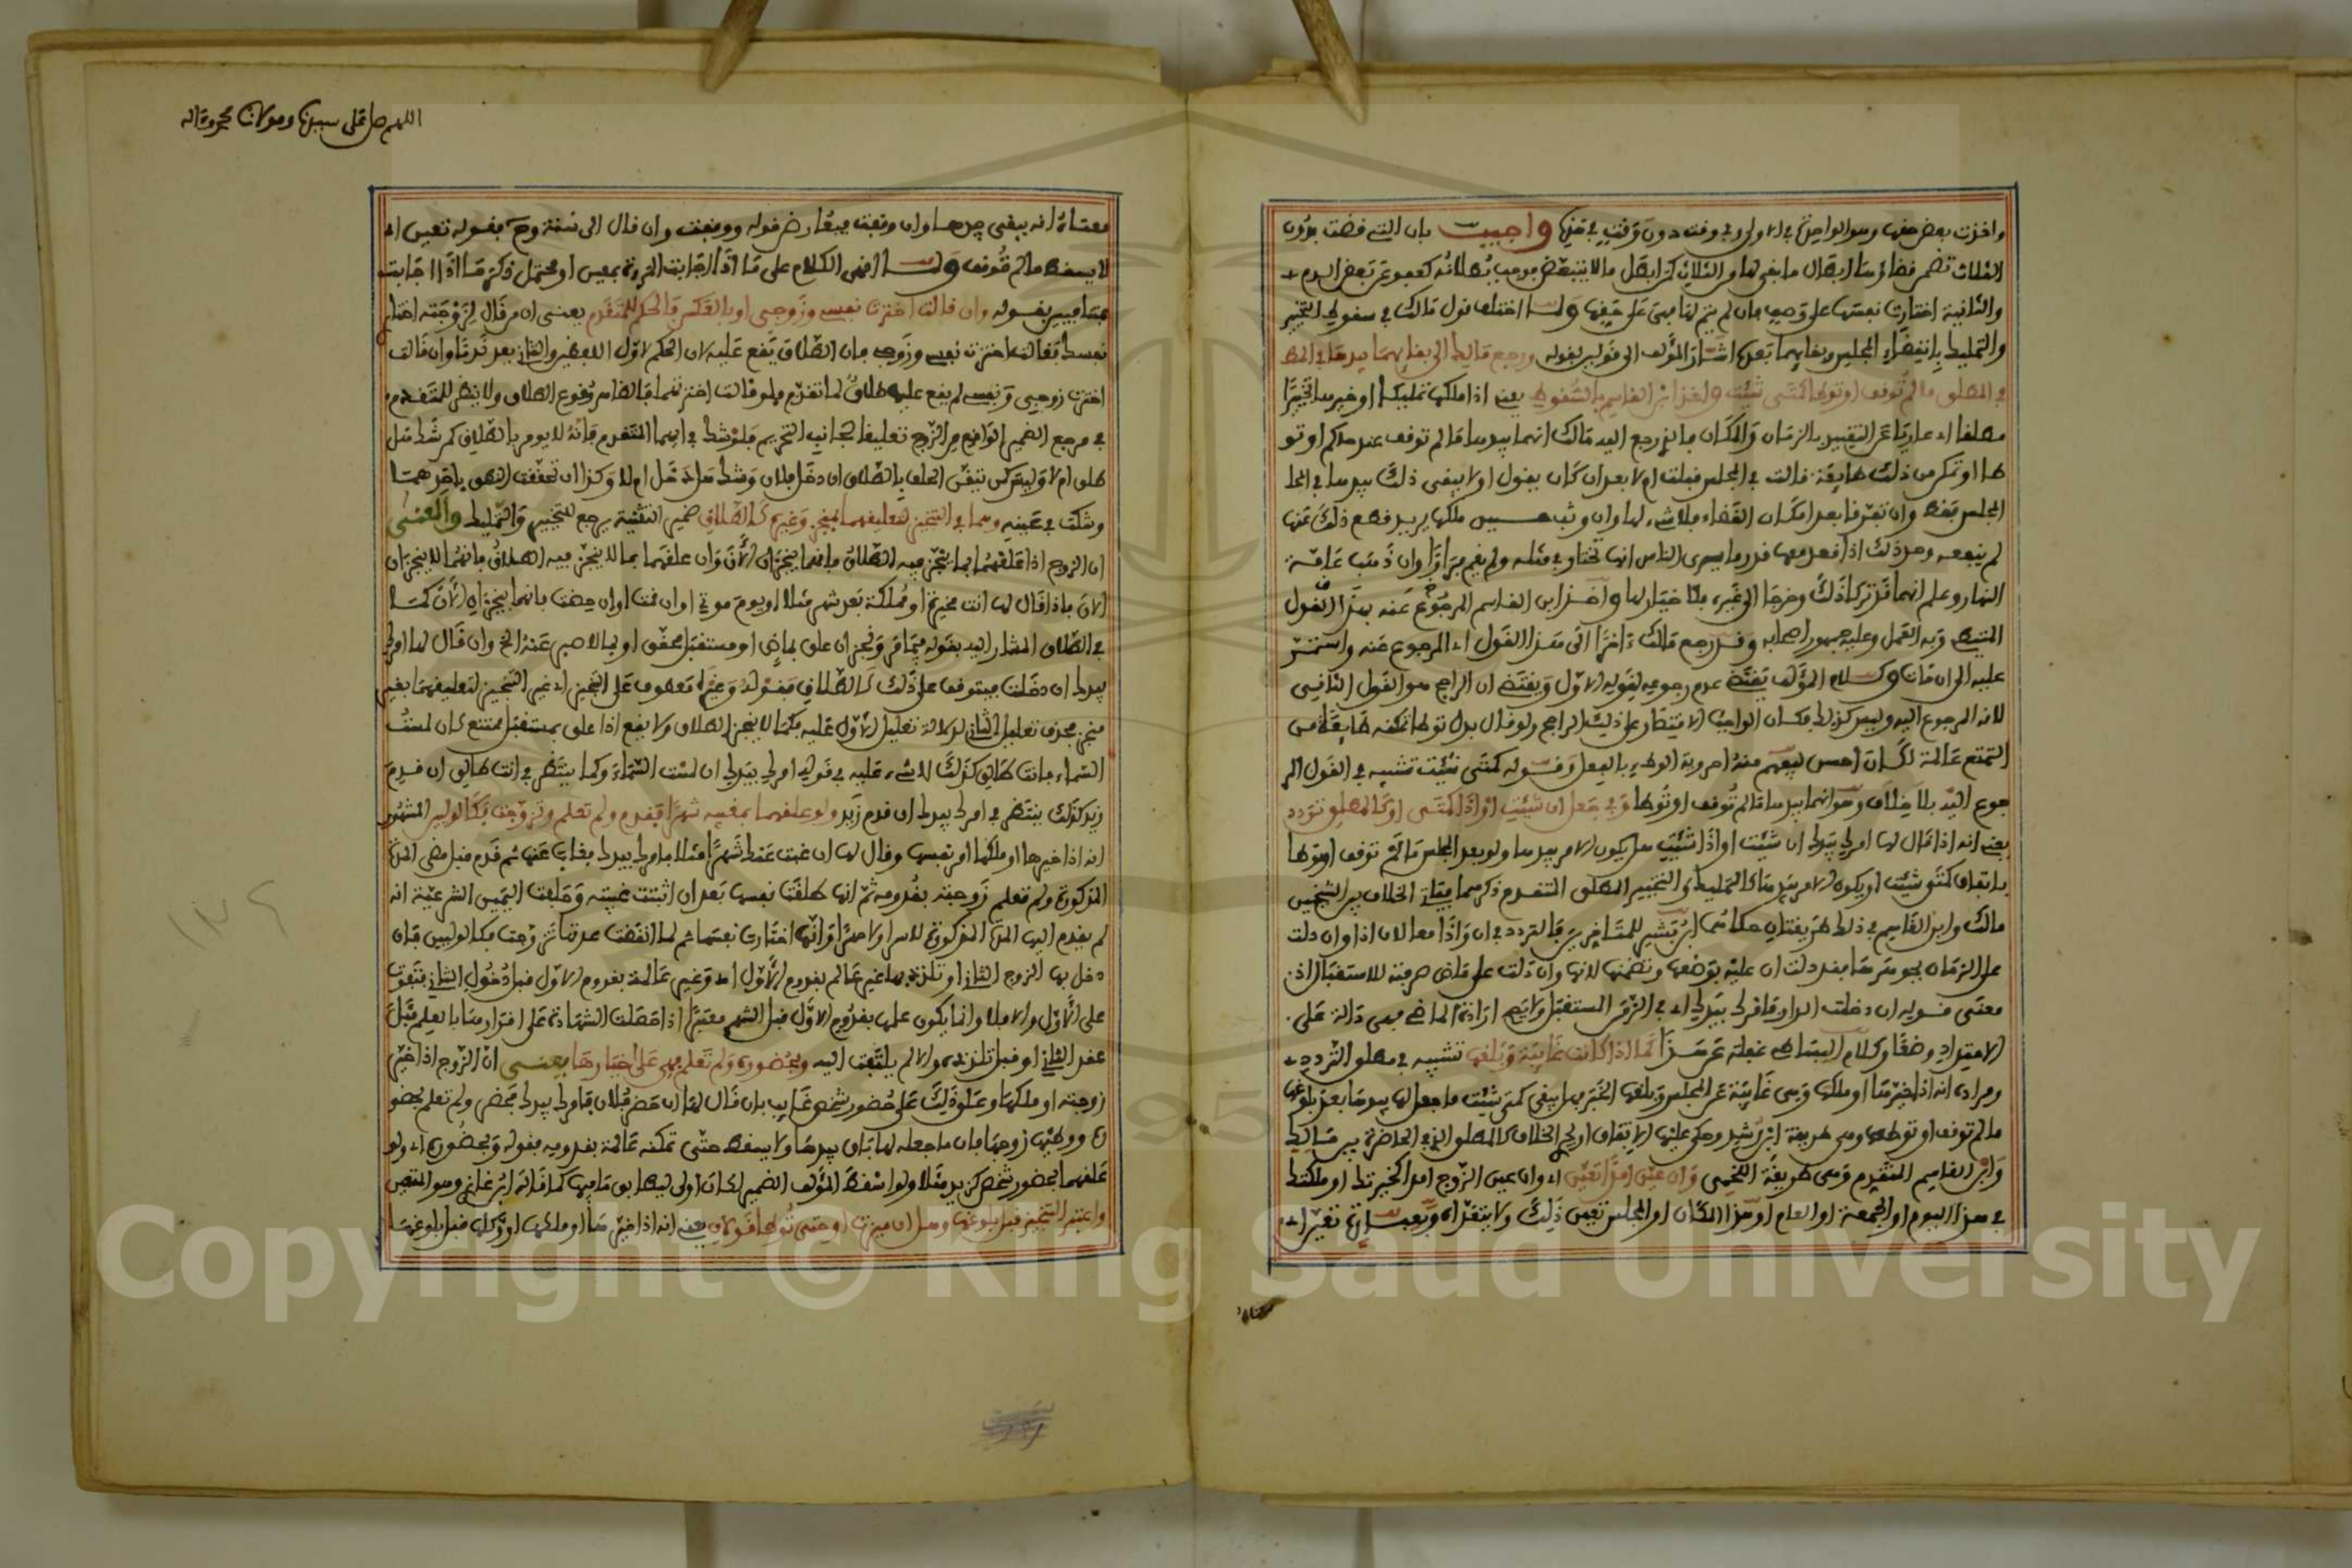 واخذت بعض حقها وهو الواحدة في الاولى وفي وقت دون وقت في غيرها واجيب بان التي قضت بدون
الثلاث تضمن قضاؤها ابطال ما بقي لها من الثلاث كذا يبطل ما لا يتبعض بوجب بطلانه كعفو عن بعض الدم
والثانية اختارت نفسها على وجه بان لم يتم لها فهي على حقها ولما اختلف قول مالك في سقوط التخيير
والتمليك بانقضاء المجلس وبقائهما بعده اشار المؤلف الى قوليه بقوله ورجع مالك الى بقائهما بيدها في المط
في المطلق ما لم توقف او توطا كمتى شئت واخذ ابن القاسم بالسقوط يعني اذا ملكها تمليكا او خيرها تخييرا
مطلقا اي عاريا عن التقييد بالزمان والمكان فالذي رجع اليه مالك انهما بيدها ما لم توقف عند حاكم او تو
طا او تمكن من ذلك طايعة قالت في المجلس قبلت ام لا بعد ان كان يقول اولا يبقى ذلك بيدها في المجا
المجلس فقط وان تفرقا بعد امكان القضاء فلا شيء لها وان وثب حين ملكها يريد قطع ذلك عنها
لم ينفعه وحد ذلك اذا قعد معها قدر ما يرى الناس انها تختار في مثله ولم يقم فرارا وان ذهب عامة
النهار وعلم انهما قد تركا ذلك وخرجا الى غيره فلا خيار لها واخذ ابن القاسم المرجوع عنه بهذا القول
المتيطي وبه العمل وعليه جمهور اصحابه وقد رجع مالك اخرا الى هذا القول اي المرجوع عنه واستمر
عليه الى ان مات وكلام المؤلف يقتضي عدم رجوعه لقوله الاول ويقتضي ان الراجح هو القول الثاني
لانه المرجوع اليه وليس كذلك فكان الواجب الاقتصار على ذلك الراجح ولو قال بدل توطا تمكنه طايعة من
التمتع عالمة لكان احسن ليفهم منه احروية الوطء بالفعل وقوله كمتى شئت تشبيه في القول المر
جوع اليه بلا خلاف وهو انهما بيدها ما لم توقف او توطا وفي جعل ان شئت او اذا كمتى او كالمطلق تردد
يعني انه اذا قال لها امرك بيدك ان شئت او اذا شئت هل يكون الامر بيدها ولو بعد المجلس ما لم توقف او توطا
باتفاق كمتى شئت او يكون الامر بيدها كالتمليك او التخيير المطلق المتقدم ذكرهما فياتي الخلاف بين الشيخين
مالك وابن القاسم في ذلك طريقتان حكاهما ابن بشير للمتاخرين فالتردد في ان واذا معا لان اذا وان دلت
على الزمان بجوهرها فقد دلت ان عليه بوضعها وتضمنها لانها وان دلت على ماض صرفته للاستقبال اذن
معنى قوله ان دخلت الدار فامرك بيدك اي في الزمن المستقبل ولا يصح ارادة الماضي فهي دالة على
الامتداد وضعا وكلام البساطي غفلة عن هذا كما اذا كانت غايبة وبلغها تشبيه في مطلق التردد
ومراده انه اذا خيرها او ملكها وهي غايبة عن المجلس وبلغها الخبر هل يبقى كمتى شئت ما جعل لها بيدها بعد بلوغه
ما لم توقف او توطا وهي طريقة ابن رشد وحكى عليها الاتفاق او يجري الخلاف كالمطلق الذي في الحاضرة بين مالك
وابن القاسم المتقدم وهي طريقة اللخمي وان عين امرا تعين اي وان عين الزوج امدا كخيرتك او ملكتك
في هذا اليوم او الجمعة او العام او هذا المكان او المجلس تعين ذلك ولا يتعداه وبعبارة تعين اي
معناه
اللهم صل على سيدنا ومولانا محمد واله
معناه انه يبقى بيدها وان وقفت فيعارض قوله ووقفت وان قال الى سنة وح فقوله تعين اي
لا يسقط ما لم توقف ولما انهى الكلام على ما اذا اجابت المرءة بمعين او محتمل ذكر ما اذا اجابت
بمتنافيين بقوله وان قالت اخترت نفسي وزوجي او بالعكس فالحكم للمتقدم يعني ان من قال لزوجته اختار
نفسك فقالت اخترت نفسي وزوجي فان الطلاق يقع عليه لان الحكم لاول اللفظين والثاني يعد ندما وان قالت
اخترت زوجي ونفسي لم يقع عليه طلاق لما تقدم فلو قالت اخترتهما فالظاهر وقوع الطلاق ولا ينظر للمتقدم
في مرجع الضمير الواقع من الزوج تغليبا لجانب التحريم فلو شك في ايهما المتقدم فانه لا يومر بالطلاق كمن شك هل
طلق ام لا وليس كمن تيقن الحلف بالطلاق ان دخل فلان وشك هل دخل ام لا وكذا ان تحققت النطق باحدهما
وشكت في عينه وهما في التنجيز لتعليقهما بمنجز وغيره كالطلاق ضمير التثنية يرجع للتخيير والتمليك والمعنى
ان الزوج اذا علقهما بما ينجز فيه الطلاق فانهما ينجزان الان وان علقهما بما لا ينجز فيه الطلاق فانهما لا ينجزان
الان فاذا قال لها انت مخيرة او مملكة بعد شهر مثلا او يوم موتي او ان قمت او ان حضت فانهما ينجزان الان كما
في الطلاق المشار اليه بقوله فيما مر ونجز ان علق بماض او مستقبل محقق او بما لا صبر عنه الخ وان قال لها امرك
بيدك ان دخلت فيتوقف على ذلك كالطلاق فقوله وغيره معطوف على التنجيز اي غير التنجيز لتعليقهما بغير
منجز فحذف تعليل الثاني لدلالة تعليل الاول عليه فكما لا ينجز الطلاق ولا يقع اذا علق بمستقبل ممتنع كان لمست
السماء فانت طالق كذلك لا شيء عليه في قوله امرك بيدك ان لمست السماء وكما ينتظر في انت طالق ان قدم
زيد كذلك ينتظر في امرك بيدك ان قدم زيد ولو علقهما بمغيبه شهرا فقدم ولم تعلم وتزوجت فكالوليين المشهور
انه اذا خيرها او ملكها امر نفسها وقال لها ان غبت عنك شهرا مثلا فامرك بيدك فغاب عنها ثم قدم قبل مضي المدة
المذكورة ولم تعلم زوجته بقدومه ثم انها طلقت نفسها بعد ان اثبتت غيبته وحلفت اليمين الشرعية انه
لم يقدم اليها المدة المذكورة لا سرا ولا جهرا وانها اختارت نفسها ثم لما انقضت عدتها تزوجت فكالوليين فان
دخل بها الزوج الثاني او تلذذ بها غير عالم بقدوم الاول اي وغير عالمة بقدوم الاول قبل دخول الثاني فتفوت
على الاول والا فلا وانما يكون علمه بقدوم الاول قبل الشهر معتبرا اذا حصلت الشهادة على اقرارها بالعلم قبل
عقد الثاني او قبل تلذذه والا لم يلتفت اليه وبحضوره ولم تعلم فهي على خيارها يعني ان الزوج اذا خير
زوجته او ملكها وعلق ذلك على حضور شخص غايب بان قال لها ان حضر فلان فامرك بيدك فحضر ولم تعلم بحضو
ره ووطئها زوجها فان ما جعله لها باق بيدها ولا يسقط حتى تمكنه عالمة بقدومه فقوله وبحضوره اي ولو
علقهما بحضور شخص كزيد مثلا ولو اسقط المؤلف الضمير لكان اولى ليطابق ما فيها كما قاله ابن غازي وهو المتعين
واعتبر التنجيز قبل بلوغها وهل ان ميزت او حتى توطا قولان يعني انه اذا خيرها او ملكها او وكلها قبل بلوغها